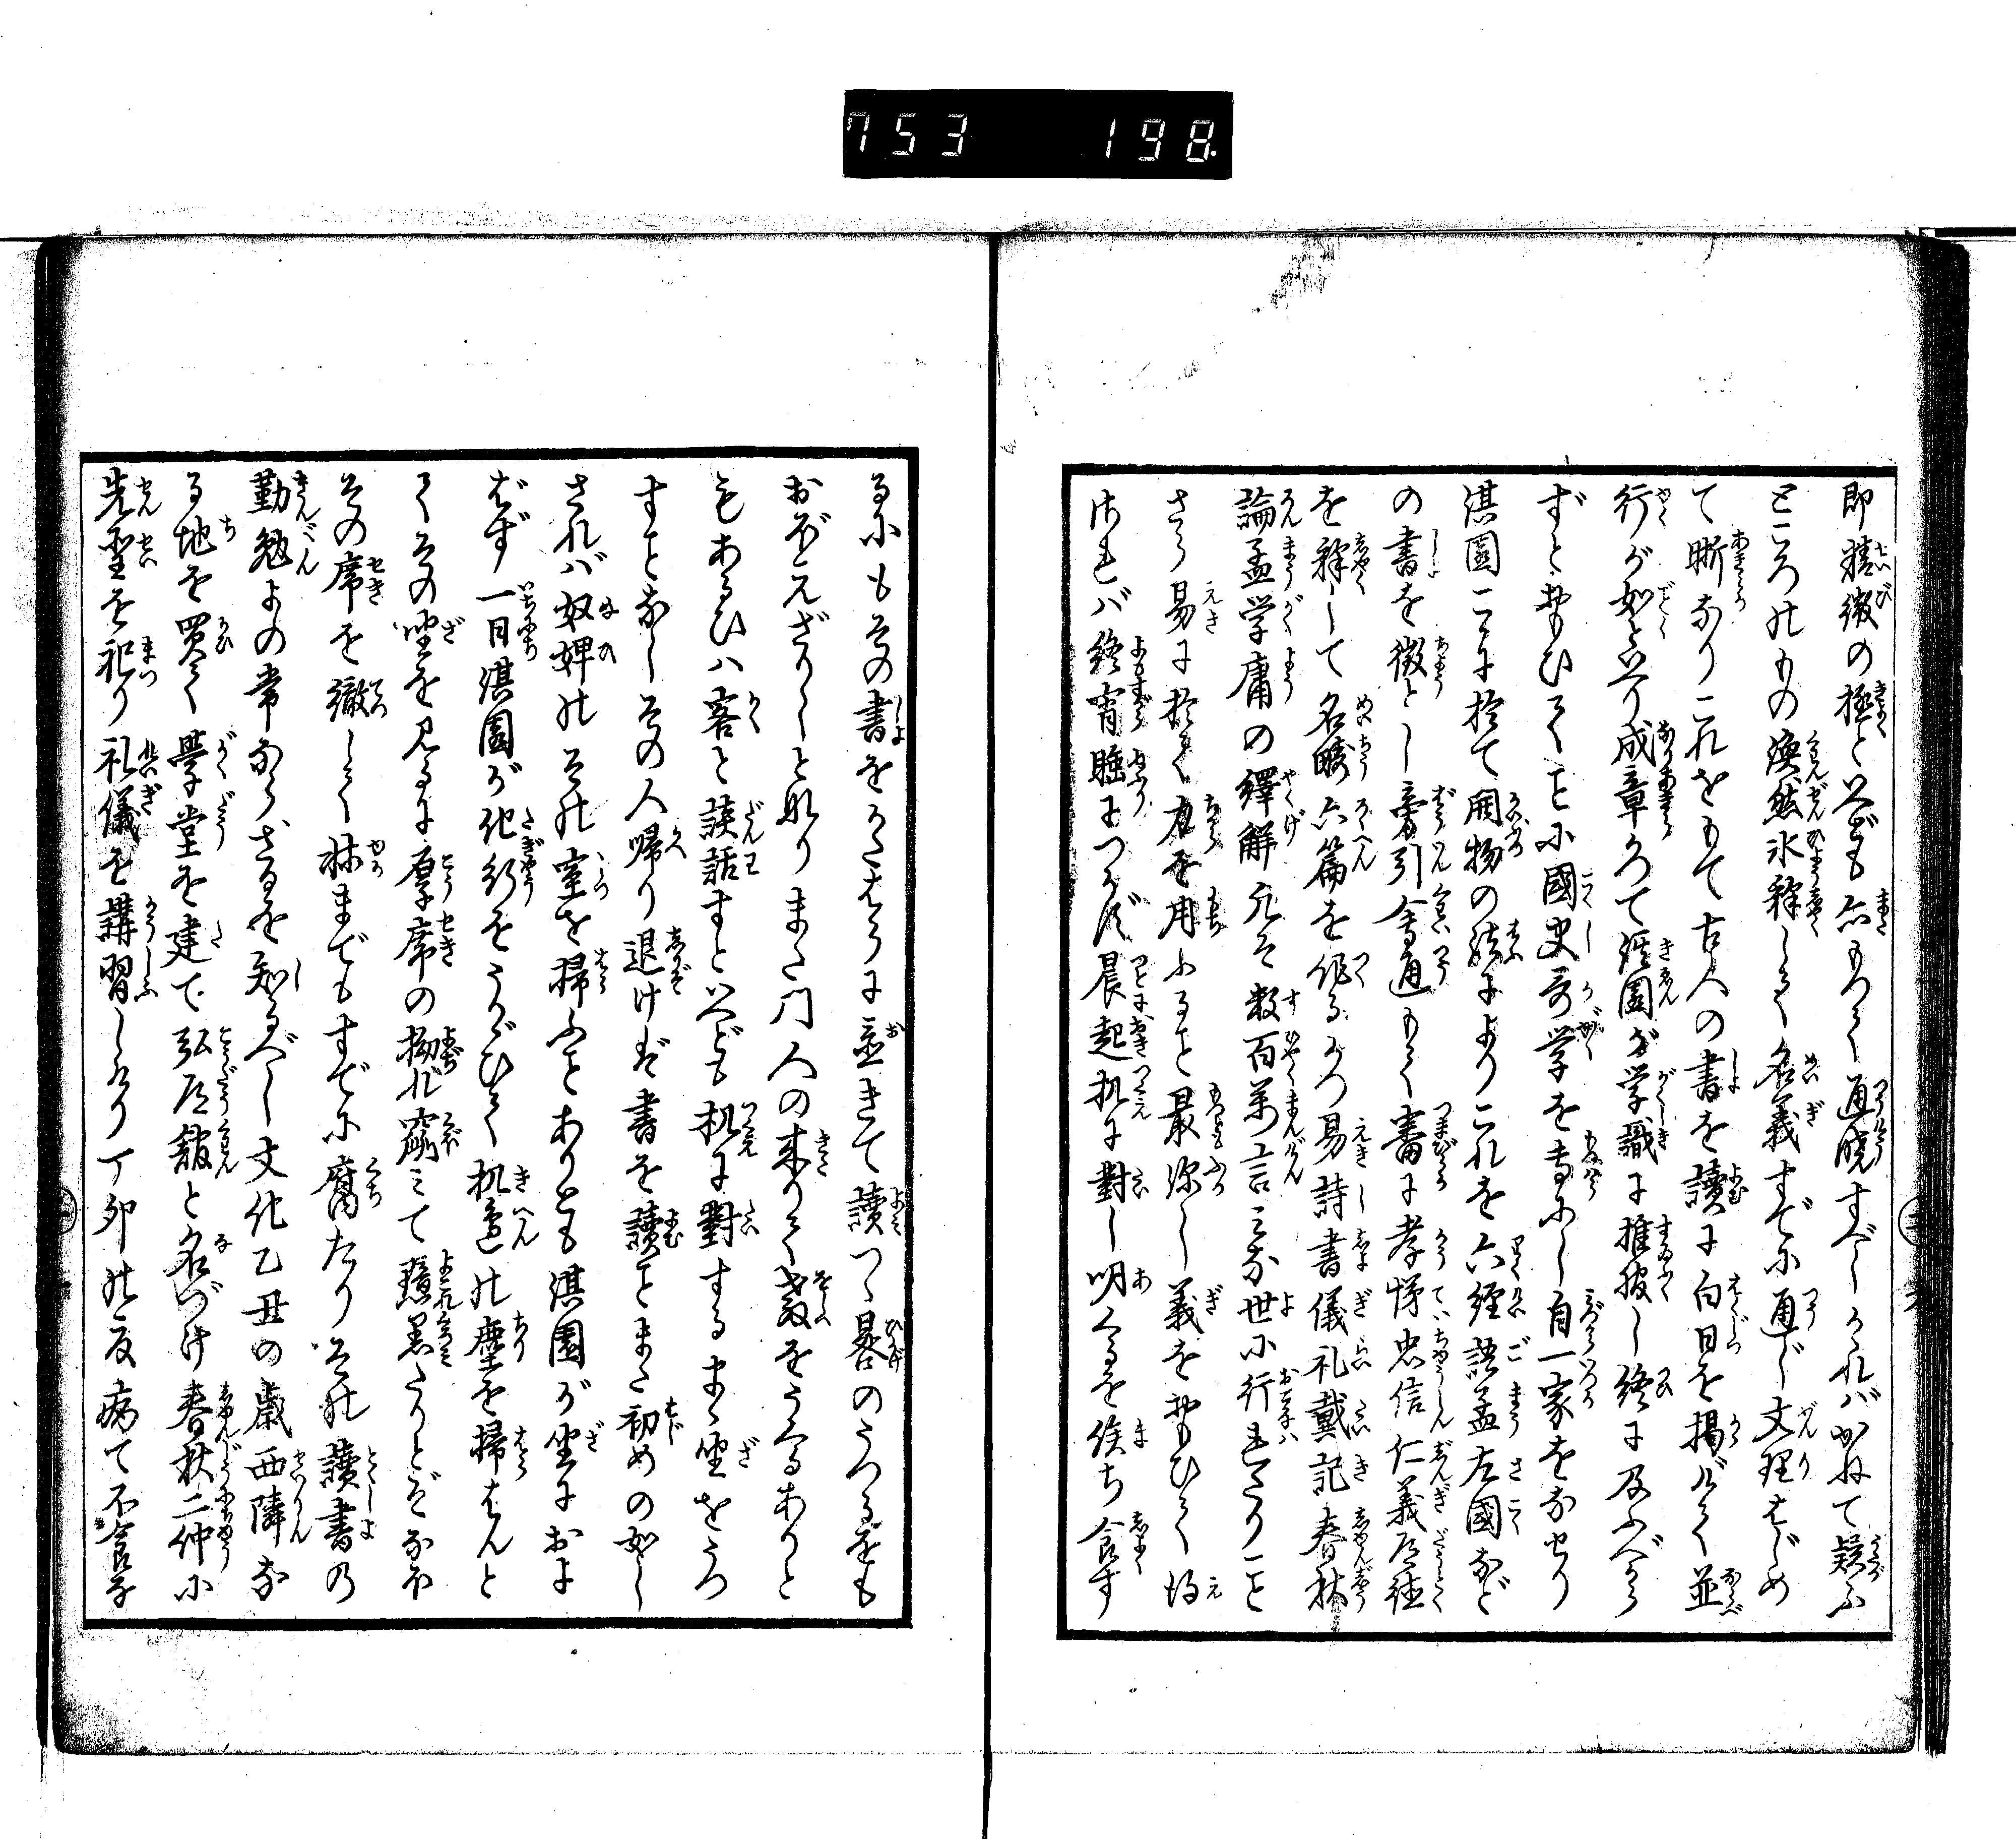 753 198
即精微の極といへども亦もつて通暁すべししかればかねて疑ふ
ところのもの渙然氷釋して名義すでに通じ文理はじめ
て晰なりこれをもて古人の書を讀に白日を掲げて並
行が如しといへり成章かつて淇園が学識に推服し終に及ぶべから
ずとおもひてことに國史哥学を専にし自一家をなせり
淇園こゝに於て開物の法によりこれを六經語孟左國など
の書を徴とし旁引會通もて審に孝悌忠信仁義道徳
を釋して名疇六篇を作るかつ易詩書儀礼戴記春秋
論孟学庸の繹解凡そ数百萬言みな世に行はれたりこと
さら易に於て力を用ふること最深し義をおもひて得
ざれバ終宵睡につかず晨起机に對し明くるを俟ち食す
るにもその書をかたはらに置きて讀つゝ晷のうつるをも
おぼえざりしとなりまた門人の来りて教をうくるありと
もあるひハ客と談話すといへども机に對するまゝ坐をうつ
すことなしその人帰り退けば書を讀ことまた初めの如し
されバ奴婢のその室を掃ふことありとも淇園が坐におよ
ばず一日淇園が他行をうかゞひて机邉の塵を掃はんと
てその坐を見るに厚席の拗れ窳みて黯黒たりとぞなほ
その席を徹して牀までもすでに腐たりその讀書の
勤勉よの常ならざるを知るべし文化乙丑の歳西隣な
る地を買て學堂を建て弘道館と名づけ春秋二仲に
先聖を祀り礼儀を講習しけり丁卯の夏病て不食な